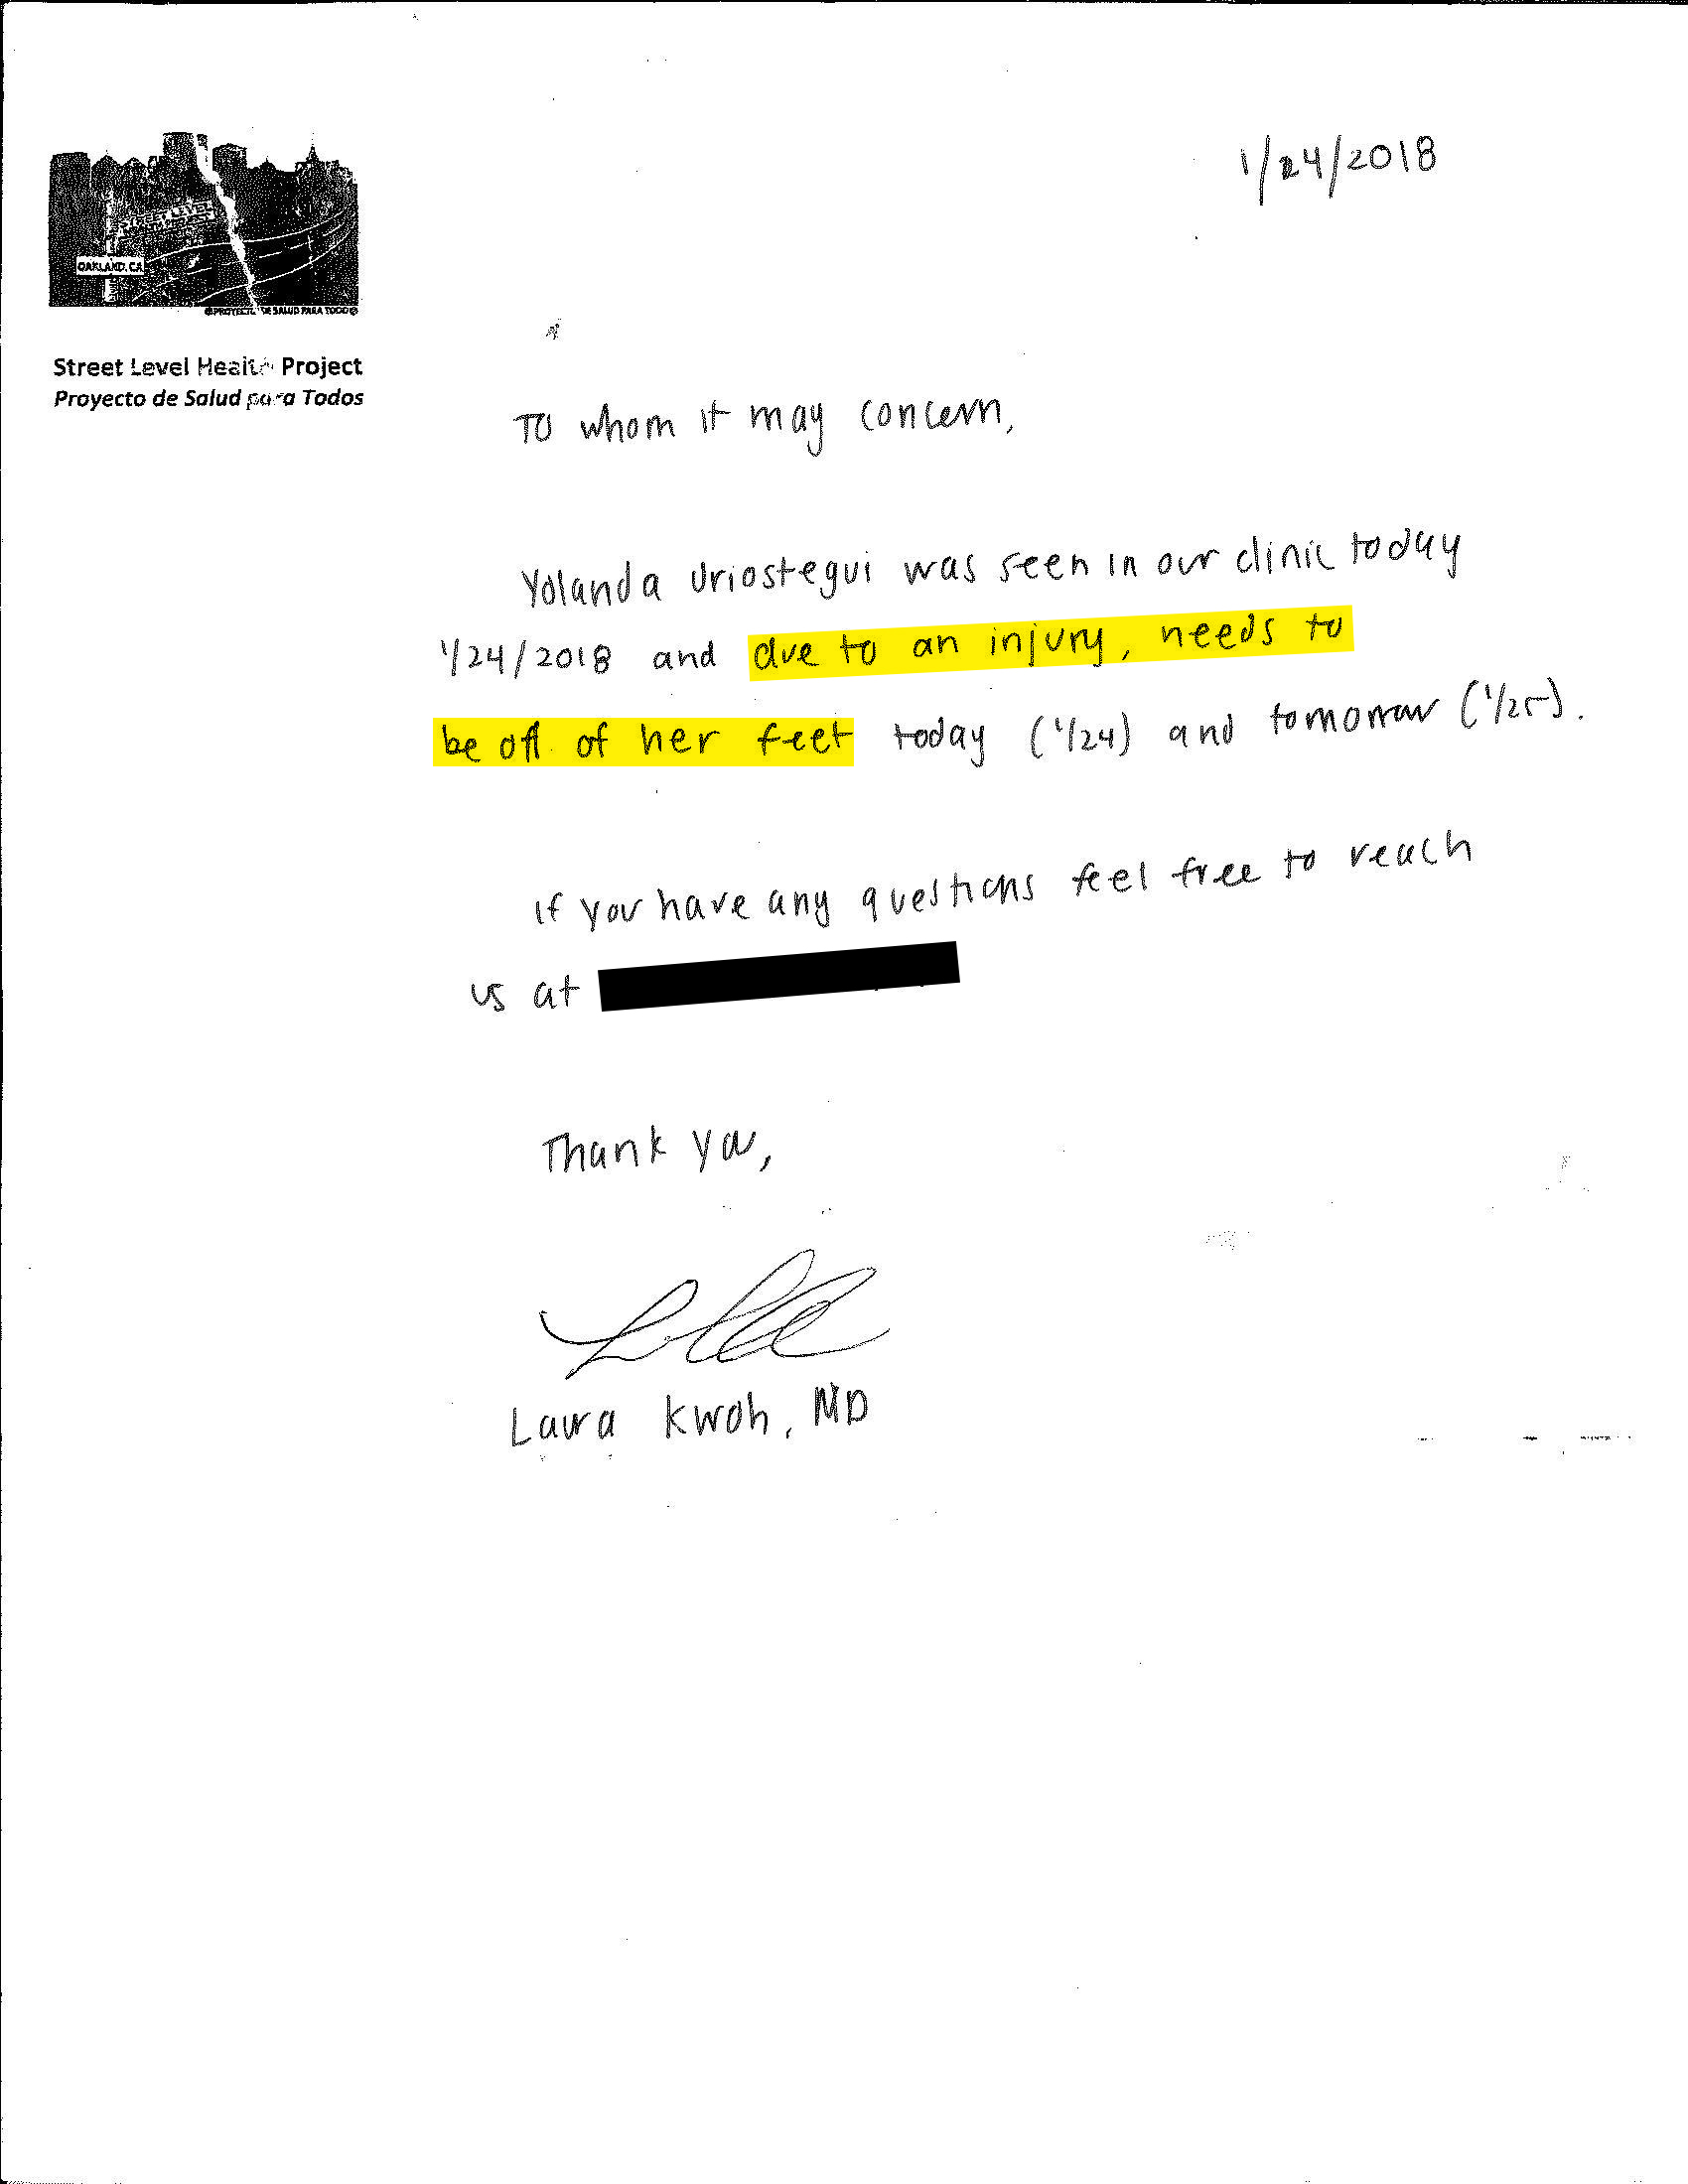 1/24/2018
STREET LEVEL
HEALTH PROJECT
OAKLAND, CA
PROYECTO DE SALUD PARA TODOS
Street Level Health Project
Proyecto de Salud para Todos
To whom it may concern,
Yolanda Uriostegui was seen in our clinic today
1/24/2018 and due to an injury, needs to
be off of her feet today (1/24) and tomorrow (1/25).
If you have any questions feel free to reach
us at
Thank you,
Laura Kwoh, MD